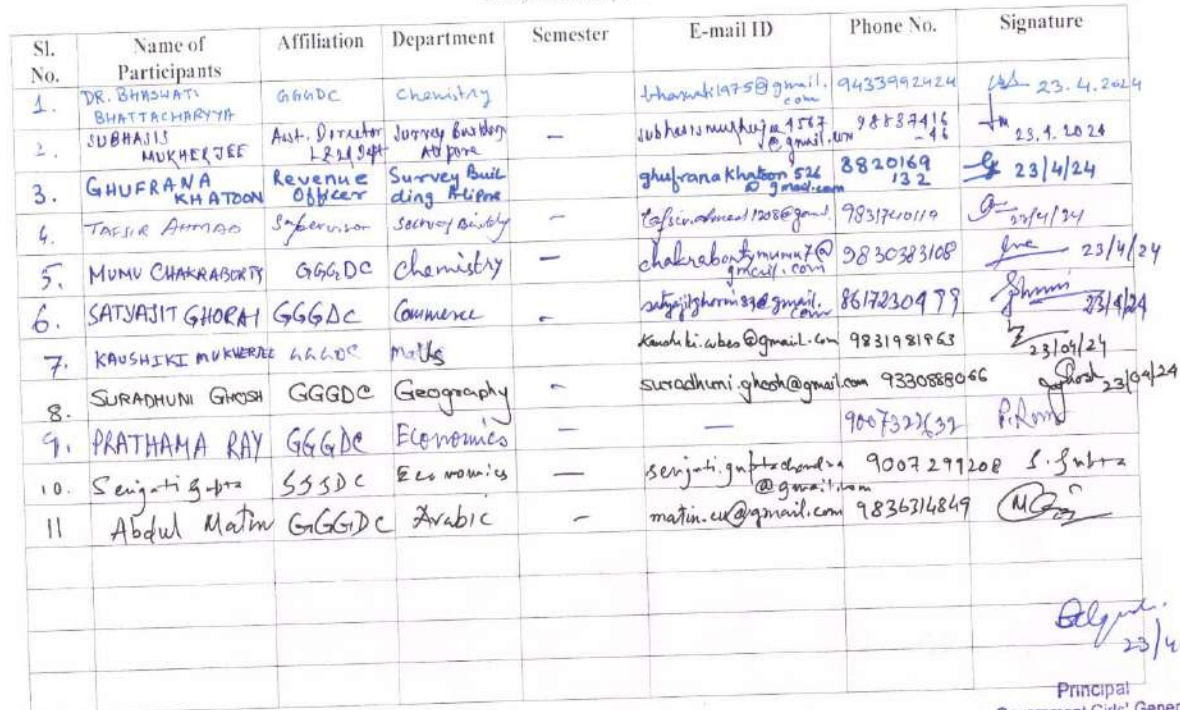 Sl. No. Name of Participants Affiliation Department Semester E-mail ID Phone No. Signature
1. DR. BHASWATI BHATTACHARYYA GGGDC Chemistry bhaswati1975@gmail.com 9433992424 23.4.2024
2. SUBHASIS MUKHERJEE Asst. Director Survey Building – 23.4.2024
3. GHUFRANA KHATOON Revenue Officer Survey Building Alipore ghufranakhatoon526@gmail.com 8820169132 23/4/24
4. TAFSIR AHMAD Supervisor Survey Building – 9831740119 23/4/24
5. MUMU CHAKRABORTY GGGDC Chemistry chakrabortymumu7@gmail.com 9830383108 23/4/24
6. SATYAJIT GHORAI GGGDC Commerce – 8617230499 23/4/24
7. KAUSHIKI MUKHERJEE GGGDC Maths 9831981963 23/04/24
8. SURADHUNI GHOSH GGGDC Geography – suradhuni.ghosh@gmail.com 9330888066 Ghosh 23/04/24
9. PRATHAMA RAY GGGDC Economics – — 9007322632
10. Senjuti Gupta Economics — 9007299208 S. Gupta
11 Abdul Matin GGGDC Arabic – matin.cu@gmail.com 9836314849
23/4
Principal
Government Girls' Gener